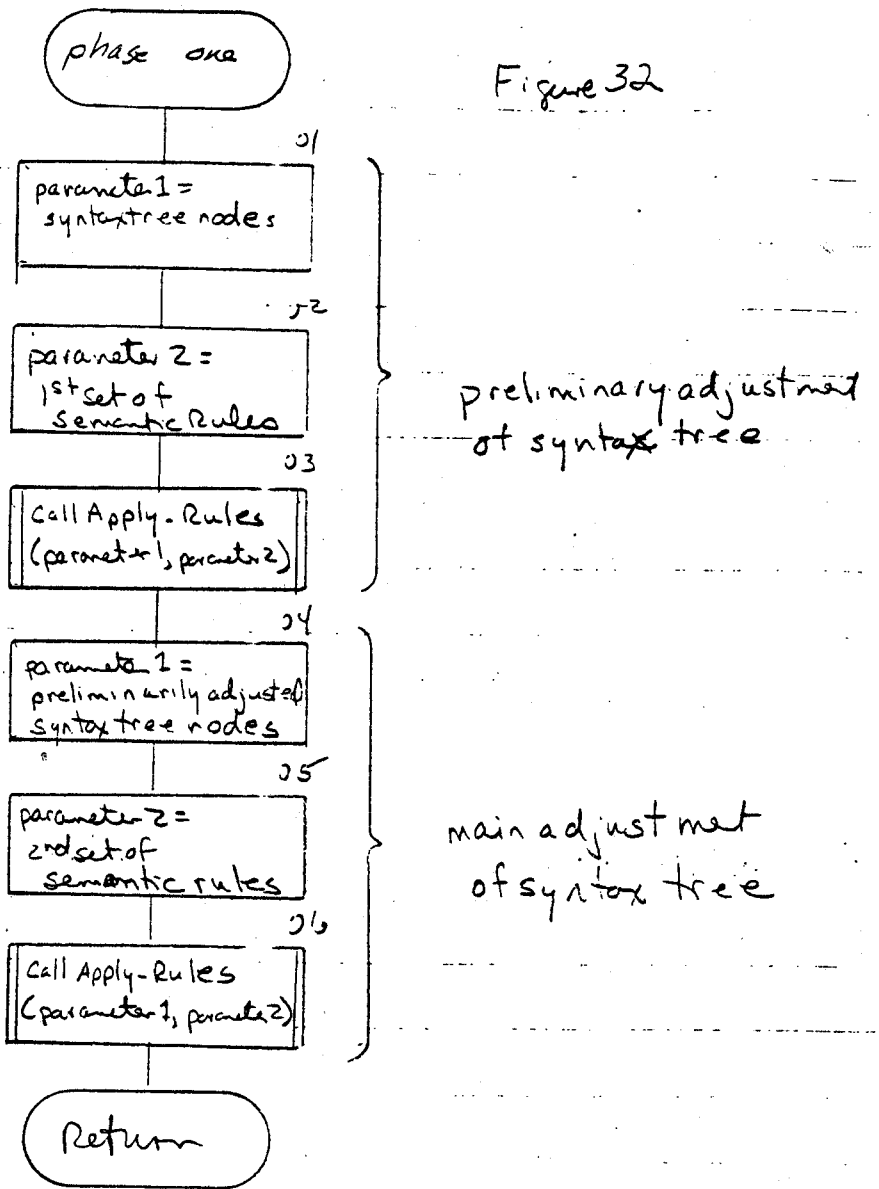 phase one
Figure 32
01
parameter 1 =
syntaxtree nodes
02
parameter 2 =
1st set of
semantic Rules
03
Call Apply-Rules
(parameter 1, parameter 2)
preliminary adjustment
of syntax tree
04
parameter 1 =
preliminarily adjusted
syntax tree nodes
05
parameter 2 =
2nd set of
semantic rules
06
Call Apply-Rules
(parameter 1, parameter 2)
main adjustment
of syntax tree
Return